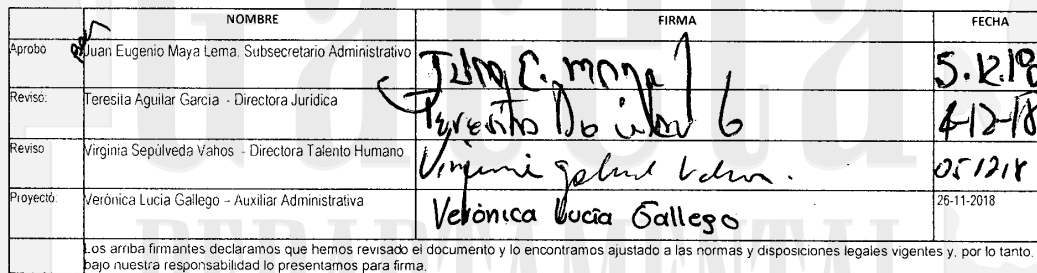 NOMBRE FIRMA FECHA
Aprobo Juan Eugenio Maya Lema. Subsecretario Administrativo 5.12.18
Reviso: Teresita Aguilar Garcia - Directora Jurídica Teresita Aguilar G 4-12-18
Reviso Virginia Sepúlveda Vahos - Directora Talento Humano Virginia 051218
Proyectó: Verónica Lucia Gallego – Auxiliar Administrativa Verónica Lucía Gallego 26-11-2018
Los arriba firmantes declaramos que hemos revisado el documento y lo encontramos ajustado a las normas y disposiciones legales vigentes y, por lo tanto,
bajo nuestra responsabilidad lo presentamos para firma.
DEPARTAMENTAL